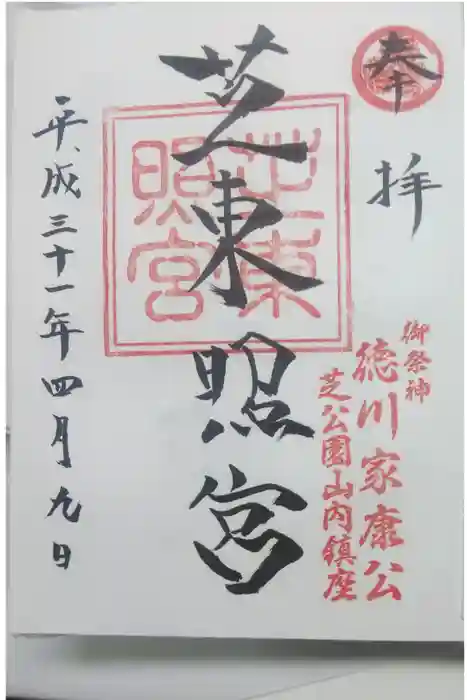 奉拝
御祭神
徳川家康公
芝公園山内鎮座
芝東照宮
芝東照宮
平成三十一年四月九日